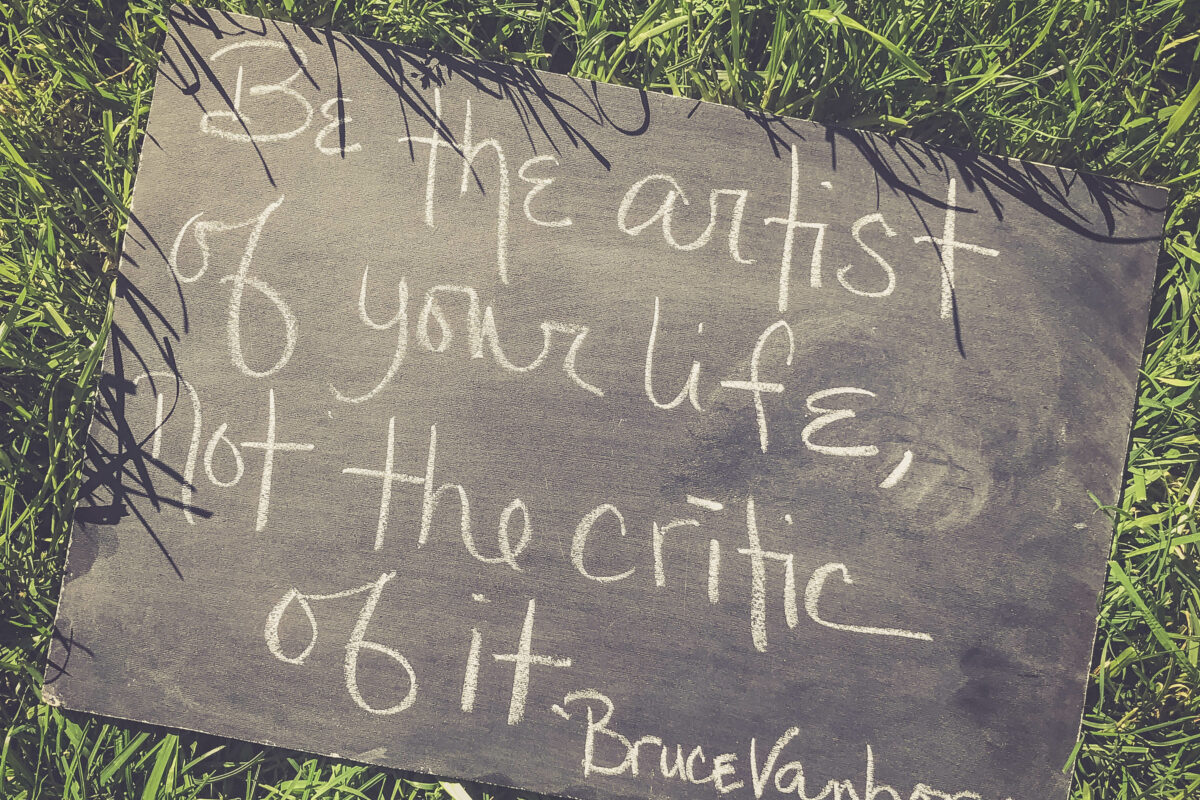 Be the artist
of your life,
Not the critic
of it
-Bruce